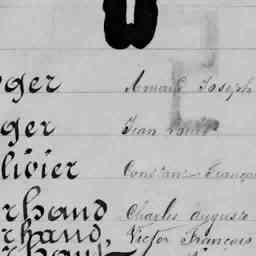 ger Armand Joseph
ger Jean Louis
livier Constant François
rhaud Charles Auguste
rhaud, Victor François